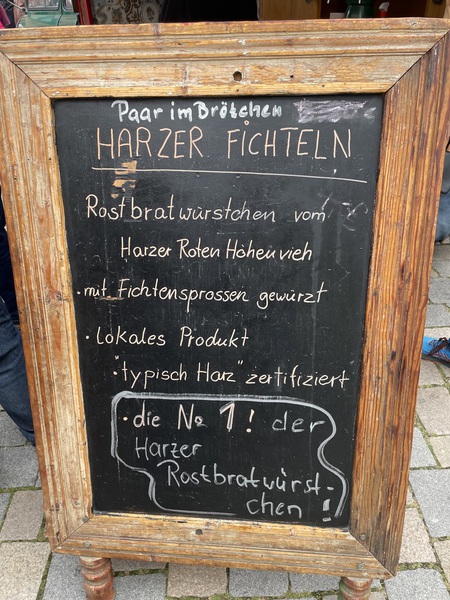 Paar im Brötchen
HARZER FICHTELN
Rostbratwürstchen vom
Harzer Roten Höhenvieh
• mit Fichtensprossen gewürzt
• lokales Produkt
"typisch Harz" zertifiziert
• die No 1! der
Harzer
Rostbratwürst-
chen!